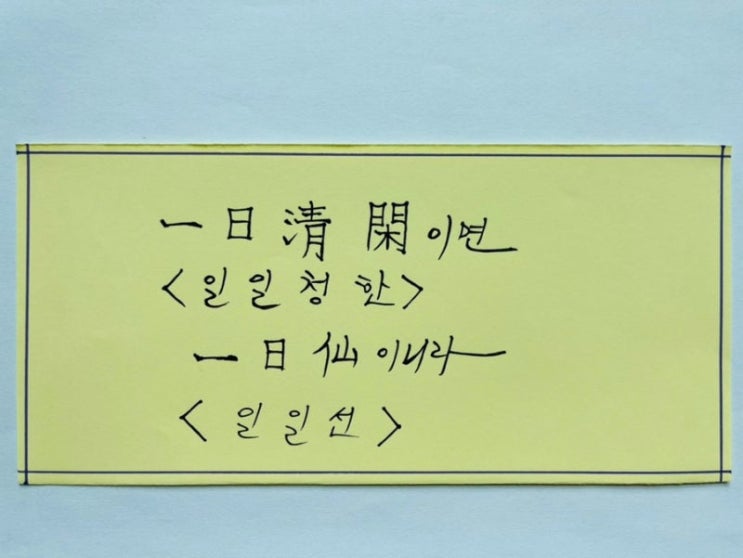 一日淸閑이면
<일일청한>
一日仙이니라
<일일선>